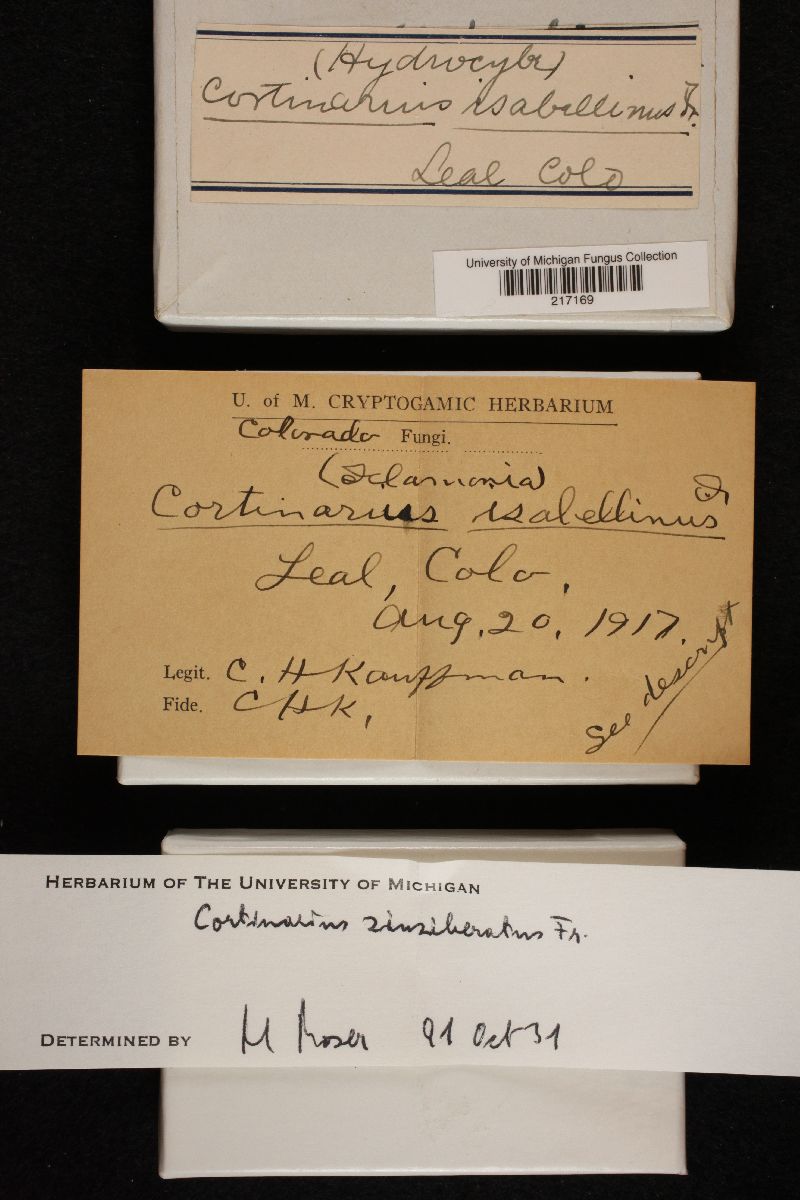 (Hydrocybe)
Cortinarius isabellinus Fr.
Leal Colo
University of Michigan Fungus Collection
217169
U. of M. CRYPTOGAMIC HERBARIUM
Colorado Fungi.
(Telamonia)
Cortinarius isabellinus Fr
Leal, Colo,
Aug. 20, 1917.
Legit. C. H Kauffman.
Fide. CHK.
See descript
HERBARIUM OF THE UNIVERSITY OF MICHIGAN
Cortinarius zinziberatus Fr.
DETERMINED BY M Moser 91 Oct 31